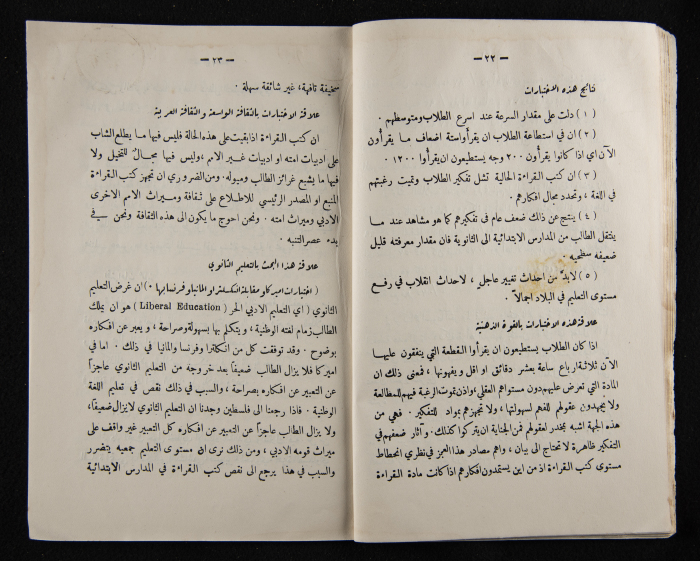 — ٢٢ —
نتائج هذه الاختبارات
( ١ ) دلت على مقدار السرعة عند اسرع الطلاب ومتوسطهم .
( ٢ ) ان في استطاعة الطلاب ان يقرأوا ستة اضعاف ما يقرأون
الآن اي اذا كانوا يقرأون ٢٠٠ وجه يستطيعون ان يقرأوا ١٢٠٠ .
( ٣ ) ان كتب القراءة الحالية تشل تفكير الطلاب وتميت رغبتهم
في اللغة ، وتحدد مجال افكارهم .
( ٤ ) ينتج عن ذلك ضعف عام في تفكيرهم كما هو مشاهد عند ما
ينتقل الطالب من المدارس الابتدائية الى الثانوية فان مقدار معرفته قليل
ضعيفه سطحيه .
( ٥ ) لابد من احداث تغيير عاجل ، لاحداث انقلاب في رفع
مستوى التعليم في البلاد اجمالاً .
علاقة هذه الاختبارات بالقوة الذهنية
اذا كان الطلاب يستطيعون ان يقرأوا القطعة التي ينفقون عليها
الآن ثلاثة ارباع ساعة بعشر دقائق او اقل ويفهمونها ، فمعنى ذلك ان
المادة التي تعرض عليهم دون مستواهم العقلي ، واذن تموت الرغبة فيهم للمطالعة
ولا يجهدون عقولهم للفهم لسهولتها ، ولا تجهزهم بمواد للتفكير . فهي من
هذه الجهة اشبه بمخدر لعقولهم فمن الجناية ان يتركوا كذلك . وآثار ضعفهم في
التفكير ظاهرة لا تحتاج الى بيان ، واهم مصادر هذا العجز في نظري انحطاط
مستوى كتب القراءة اذ من اين يستمدون افكارهم اذا كانت مادة القراءة
— ٢٣ —
سخيفة تافهة ، غير شائقة سهلة .
علاقة الاختبارات بالثقافة الواسعة والثقافة العربية
ان كتب القراءة اذا بقيت على هذه الحالة فليس فيها ما يطلع الشاب
على ادبيات امته او ادبيات غير الامم ، وليس فيها مجال للتخيل ولا
فيها ما يشبع غرائز الطالب وميوله . ومن الضروري ان تجهز كتب القراءة
المنبع او المصدر الرئيسي للاطلاع على ثقافة وميراث الامم الاخرى
الادبي وميراث امته . ونحن احوج ما يكون الى هذه الثقافة ونحن في
بدء عصر التنبه .
علاقة هذا البحث بالتعليم الثانوي
( اختبارات اميركا ومقابلة انكلترا والمانيا وفرنسا بها . ) ان غرض التعليم
الثانوي ( اي التعليم الادبي الحر ( Liberal Education ) هو ان يملك
الطالب زمام لغته الوطنية ، ويتكلم بها بسهولة وصراحة ، ويعبر عن افكاره
بوضوح . وقد توفقت كل من انكلترا وفرنسا والمانيا في ذلك . اما في
اميركا فلا يزال الطالب ضعيفاً بعد خروجه من التعليم الثانوي عاجزاً
عن التعبير عن افكاره بصراحة ، والسبب في ذلك نقص في تعليم اللغة
الوطنية . فاذا رجعنا الى فلسطين وجدنا ان التعليم الثانوي لا يزال ضعيفاً،
ولا يزال الطالب عاجزاً عن التعبير عن افكاره كل التعبير غير واقف على
ميراث قومه الادبي ، ومن ذلك نرى ان مستوى التعليم جميعه يتضرر
والسبب في هذا يرجع الى نقص كتب القراءة في المدارس الابتدائية